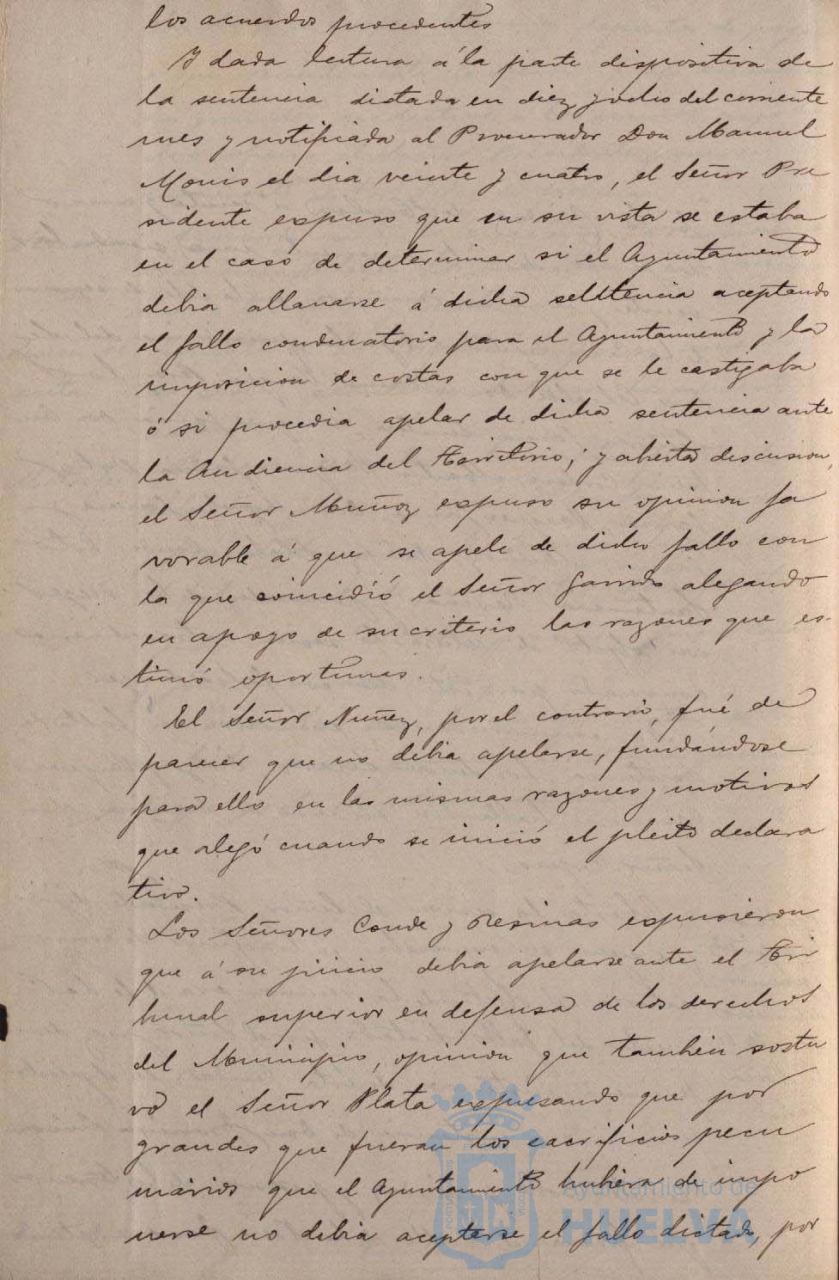 los acuerdos procedentes
Y dada lectura á la parte dispositiva de
la sentencia dictada en diez y ocho del corriente
mes y notificada al Procurador Don Manuel
Monis el dia veinte y cuatro, el Señor Pre
sidente expuso que en su vista se estaba
en el caso de determinar si el Ayuntamiento
debia allanarse á dicha sentencia aceptando
el fallo condenatorio para el Ayuntamiento y la
imposicion de costas con que se le castigaba
ó si procedia apelar de dicha sentencia ante
la Audiencia del Territorio; y abierta discusion,
el Señor Muñoz expuso su opinion fa
vorable á que se apele de dicho fallo con
la que coincidió el Señor Garrido alegando
en apoyo de su criterio las razones que es-
timó oportunas.
El Señor Nuñez, por el contrario, fué de
parecer que no debia apelarse, fundándose
para ello en las mismas razones y motivos
que alegó cuando se inició el pleito declara
tivo.
Los Señores Conde y Resinas expusieron
que á su juicio debia apelarse ante el Tri
bunal superior en defensa de los derechos
del Municipio, opinion que tambien sostu
vo el Señor Plata expresando que por
grandes que fueran los sacrificios pecu
niarios que el Ayuntamiento hubiera de impo
nerse no debia aceptarse el fallo dictado, por
Ayuntamiento de
HUELVA